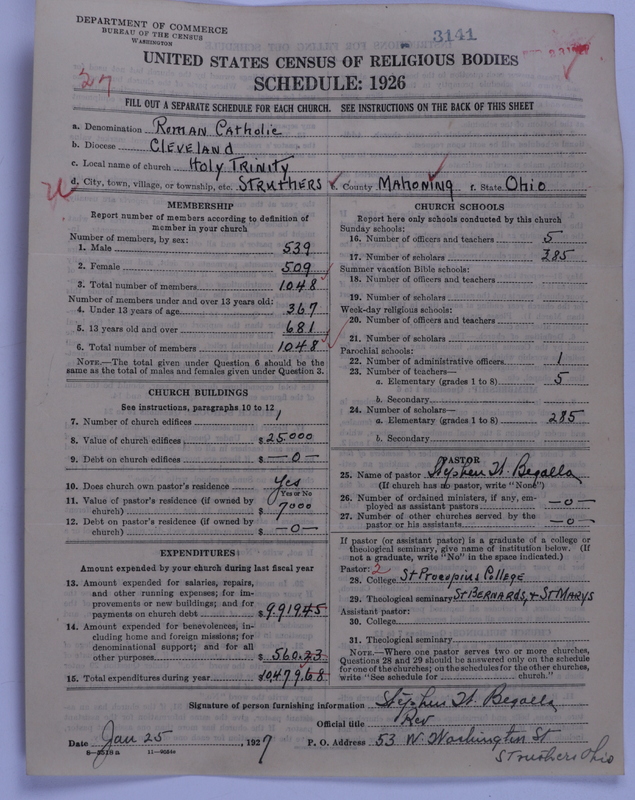 DEPARTMENT OF COMMERCE
BUREAU OF THE CENSUS
WASHINGTON
3141
UNITED STATES CENSUS OF RELIGIOUS BODIES
SCHEDULE: 1926
27
FILL OUT A SEPARATE SCHEDULE FOR EACH CHURCH. SEE INSTRUCTIONS ON THE BACK OF THIS SHEET
a. Denomination ROMAN CATHOLIC
b. Diocese CLEVELAND
c. Local name of church HOLY TRINITY
d. City, town, village, or township, etc. STRUTHERS e. County MAHONING f. State OHIO
MEMBERSHIP
Report number of members according to definition of
member in your church
Number of members, by sex:
1. Male 539
2. Female 509
3. Total number of members 1048
Number of members under and over 13 years old:
4. Under 13 years of age 367
5. 13 years old and over 681
6. Total number of members 1048
NOTE.—The total given under Question 6 should be the
same as the total of males and females given under Question 3.
CHURCH BUILDINGS
See instructions, paragraphs 10 to 12
7. Number of church edifices 1
8. Value of church edifices $ 25000
9. Debt on church edifices $ —0—
10. Does church own pastor's residence? Yes
Yes or No
11. Value of pastor's residence (if owned by
church) $ 7000
12. Debt on pastor's residence (if owned by
church) $ —0—
EXPENDITURES
Amount expended by your church during last fiscal year
13. Amount expended for salaries, repairs,
and other running expenses; for im-
provements or new buildings; and for
payments on church debt $ 9919.45
14. Amount expended for benevolences, in-
cluding home and foreign missions; for
denominational support; and for all
other purposes $ 560.23
15. Total expenditures during year $ 10479.68
CHURCH SCHOOLS
Report here only schools conducted by this church
Sunday schools:
16. Number of officers and teachers 5
17. Number of scholars 285
Summer vacation Bible schools:
18. Number of officers and teachers
19. Number of scholars
Week-day religious schools:
20. Number of officers and teachers
21. Number of scholars
Parochial schools:
22. Number of administrative officers 1
23. Number of teachers—
a. Elementary (grades 1 to 8) 5
b. Secondary
24. Number of scholars—
a. Elementary (grades 1 to 8) 285
b. Secondary
PASTOR
25. Name of pastor Stephen W. Begalla
(If church has no pastor, write "None")
26. Number of ordained ministers, if any, em-
ployed as assistant pastors —0—
27. Number of other churches served by the
pastor or his assistants —0—
If pastor (or assistant pastor) is a graduate of a college or
theological seminary, give name of institution below. (If
not a graduate, write "No" in the space indicated.)
Pastor: 2
28. College St Procopius College
29. Theological seminary St BERNARDS, & ST MARYS
Assistant pastor:
30. College
31. Theological seminary
NOTE.—Where one pastor serves two or more churches,
Questions 28 and 29 should be answered only on the schedule
for one of the churches; on the schedules for the other churches,
write "See schedule for church."
Signature of person furnishing information Stephen W. Begalla
Official title Rev
Date Jan 25, 1927 P. O. Address 53 W. Washington St
Struthers Ohio
8—3518a 11—9034a